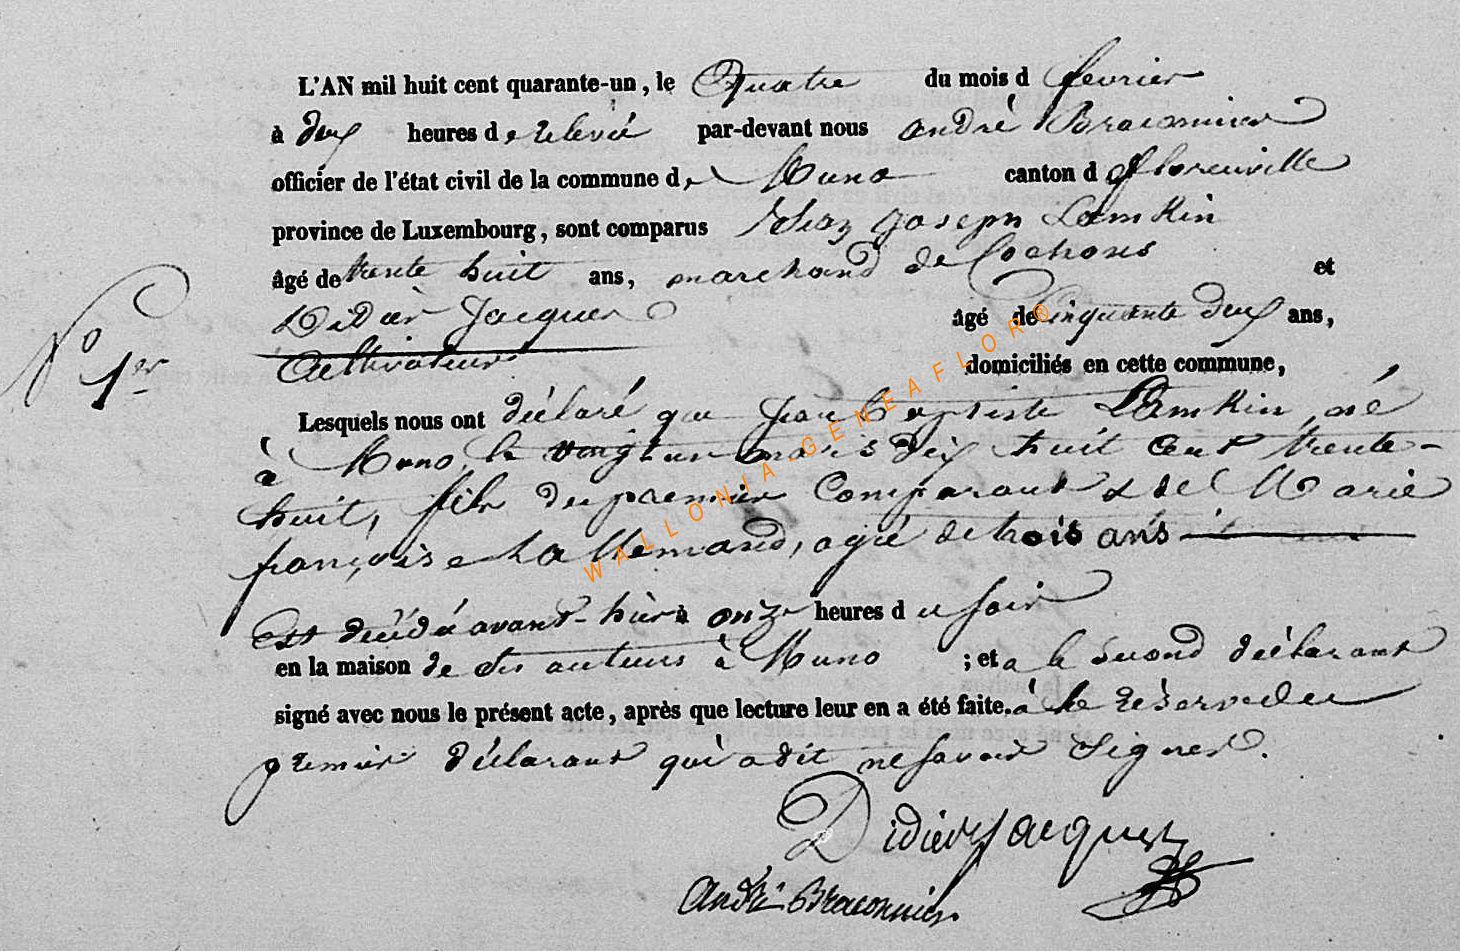 L'AN mil huit cent quarante-un, le Quatre du mois d fevrier
à deux heures de relevée par-devant nous andré Braconnier
officier de l'état civil de la commune de Muno canton d florenville
province de Luxembourg, sont comparus joseph Lamkin
âgé de trente huit ans, marchand de Cochons et
Didier Jacques âgé de Cinquante deux ans,
Cultivateur domiciliés en cette commune,
No 1er
Lesquels nous ont déclaré que jean Baptiste Lamkin, né
à Muno, le vingt un mars dix huit cent trente-
huit, fils du premier Comparant & de Marie
françoise Lallemand, agé de trois ans
Est décédé avant-hier à onze heures du soir
en la maison de ses auteurs à Muno ; et a le second déclarant
signé avec nous le présent acte, après que lecture leur en a été faite. à la réserve du
premier déclarant qui a dit ne savoir signer.
Didier Jacques
André Braconnier.
WALLONIA-GENEAFLOR©